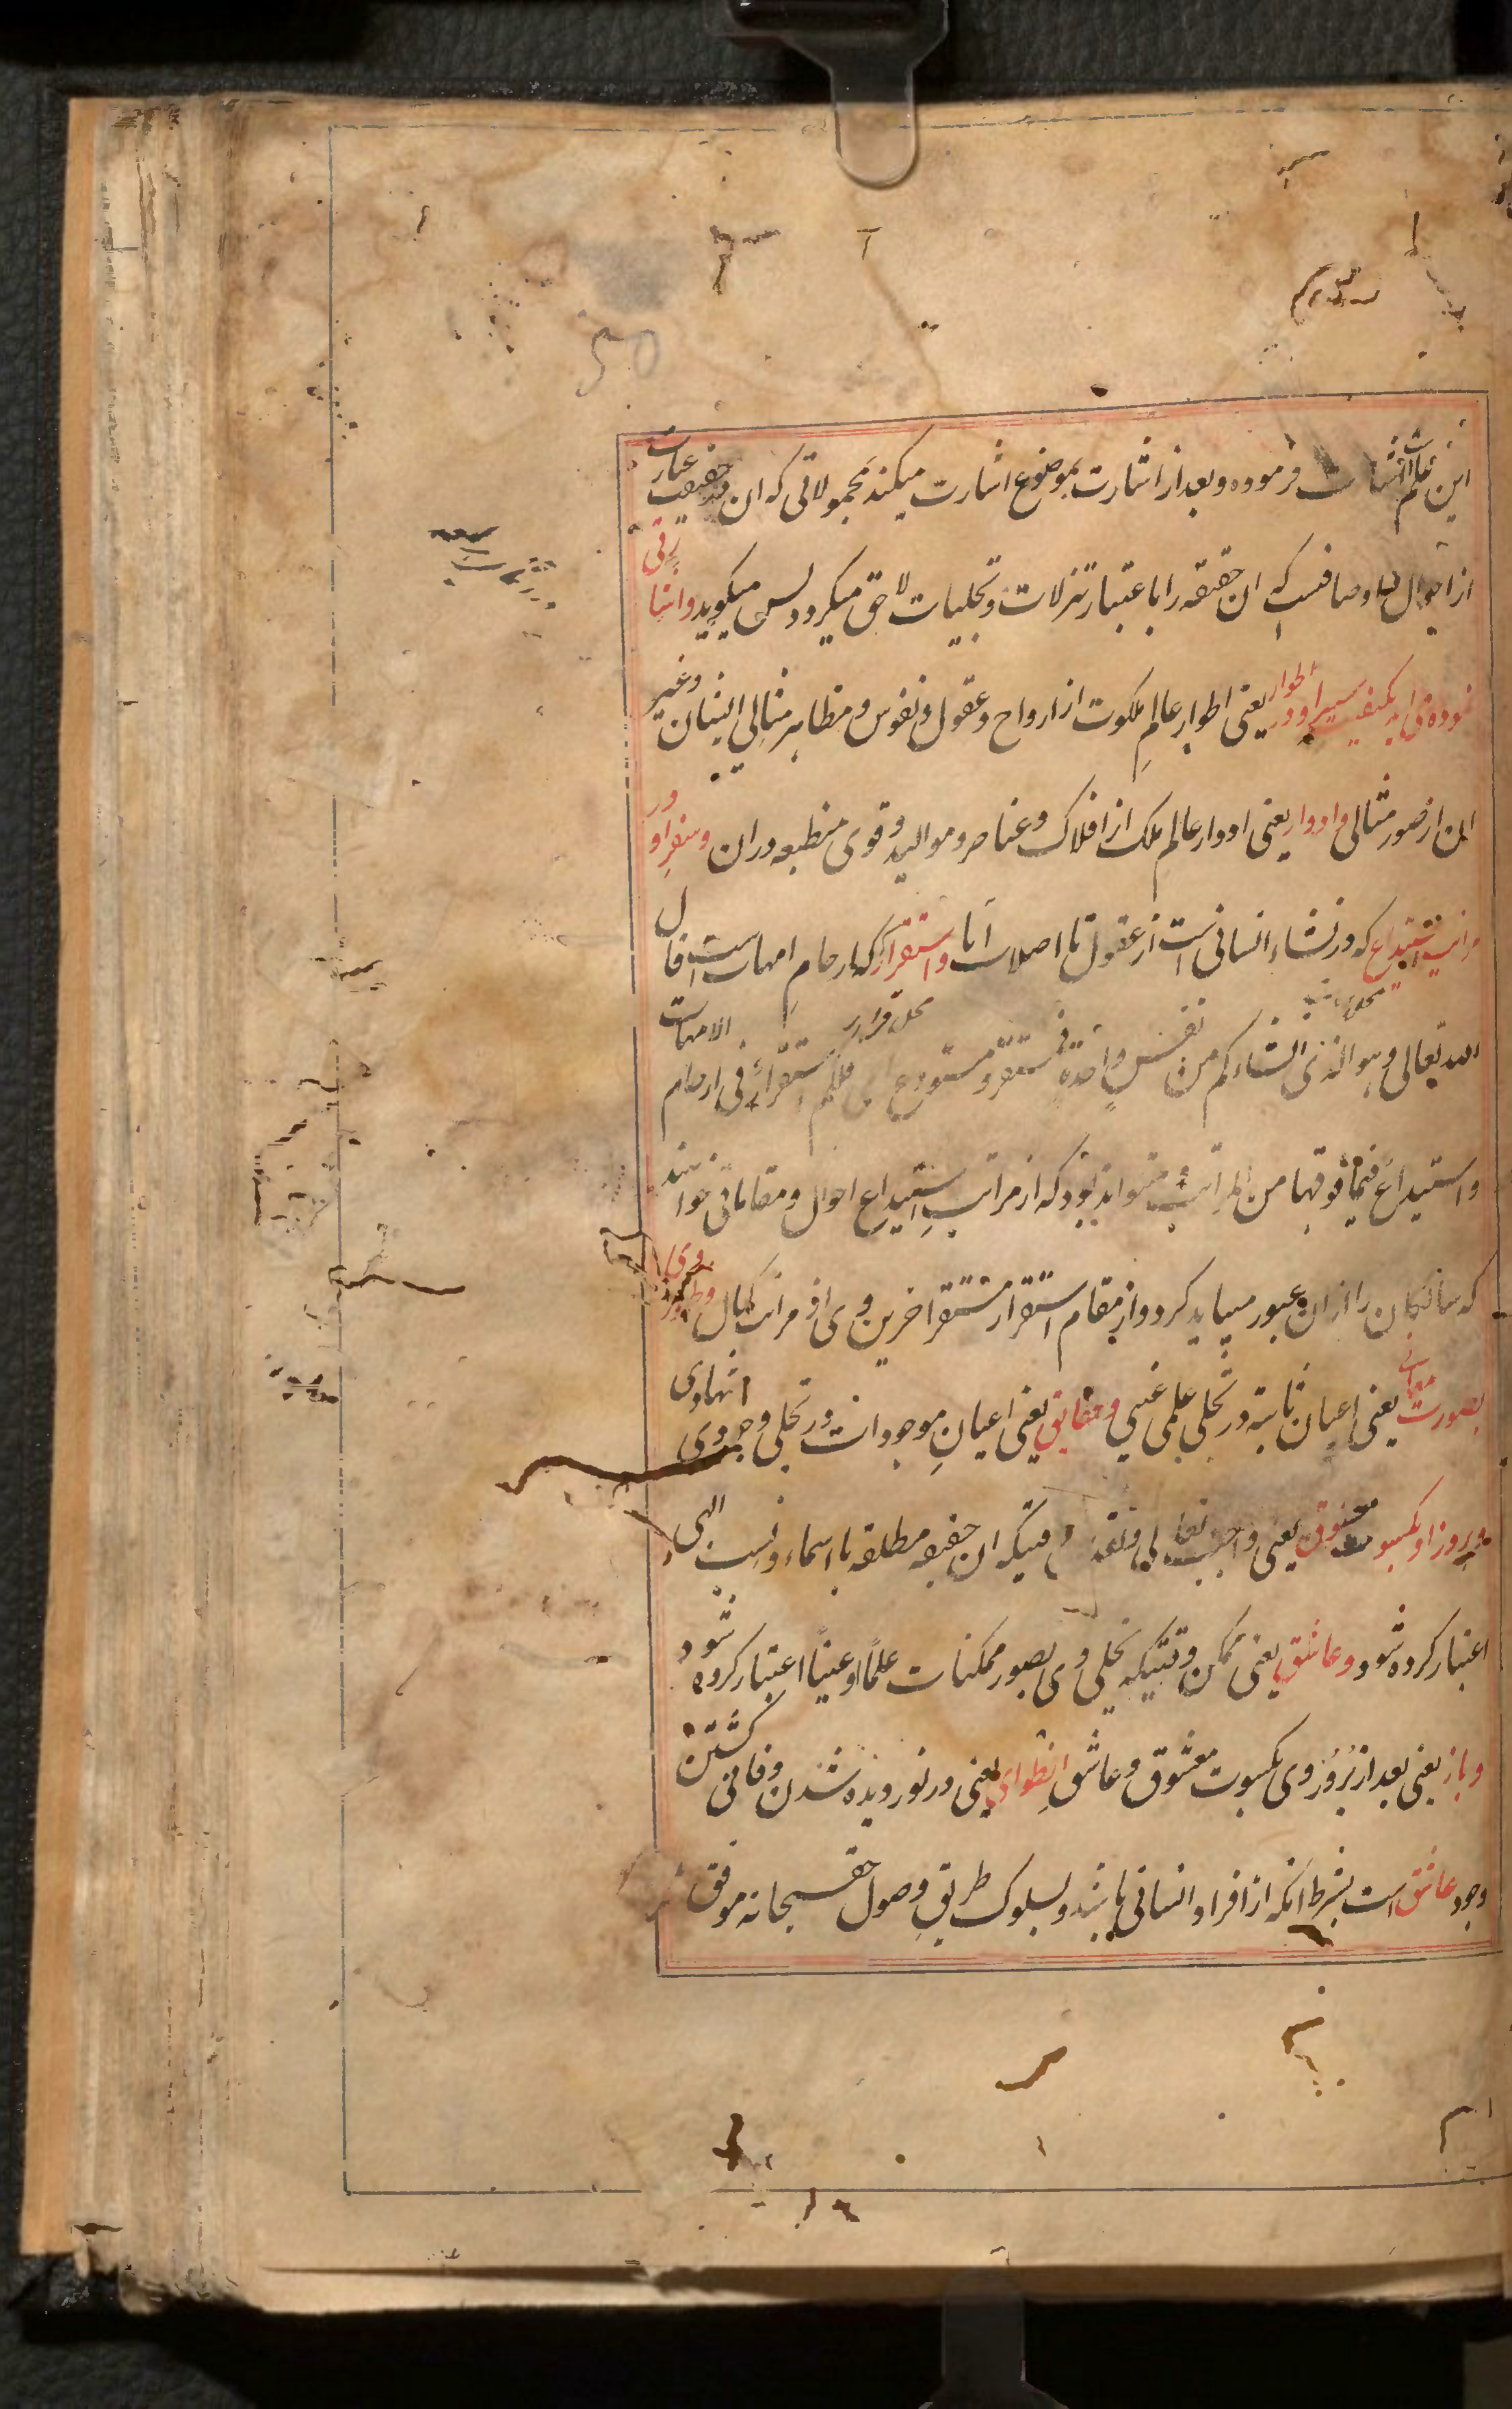 این علم است اشارت فرموده و بعد از اشارت بموضوع اشارت میکند بمحمولاتی که ان حقیقت عبارت
از احوال و اوصافیست که ان حقیقه را باعتبار تنزلات و تجلیات لاحق میکردد پس میکوید و اشارتی
نموده می اید بکیفیت سیر او در اطوار یعنی اطوار عالم ملکوت از ارواح و عقول و نفوس و مظاهر مثالی ایشان و غیر
این از صور مثالی و ادوار یعنی ادوار عالم ملک از افلاک و عناصر و موالید و قوی منطبعه در ان و سفر او در
مراتب استیداع که در نشاء انسانی است از عقول تا اصلاب ابا و استقرار که ارحام امهات است قال
الله تعالی و هو الذی انشاءکم من نفس واحدة فمستقر و مستودع ای فلکم استقرار فی ارحام الامهات
محل قرار
و استیداع فیما فوقها من المراتب و میتواند بود که از مراتب استیداع احوال و مقاماتی خواهند
که سالکان را از ان عبور میباید کرد و از مقام استقرار مستقر اخرین وی از مراتب کمال و ظهور وی
بصورت معانی یعنی اعیان ثابته در تجلی علمی غیبی و حقایق یعنی اعیان موجودات در تجلی وجودی شهادی
و بروز او بکسوت معشوق یعنی واجب تعالی و تقدس وقتیکه ان حقیقه مطلقه با اسماء و نسب الهی
اعتبار کرده شود و عاشق یعنی ممکن وقتیکه تجلی وی بصور ممکنات علما او عینا اعتبار کرده شود
و باز یعنی بعد از بروز وی بکسوت معشوق و عاشق انطوای یعنی در نوردیده شدن و فانی کشتن
وجود عاشق است بشرط انکه از افراد انسانی باشد و بسلوک طریق وصول حق سبحانه موفق